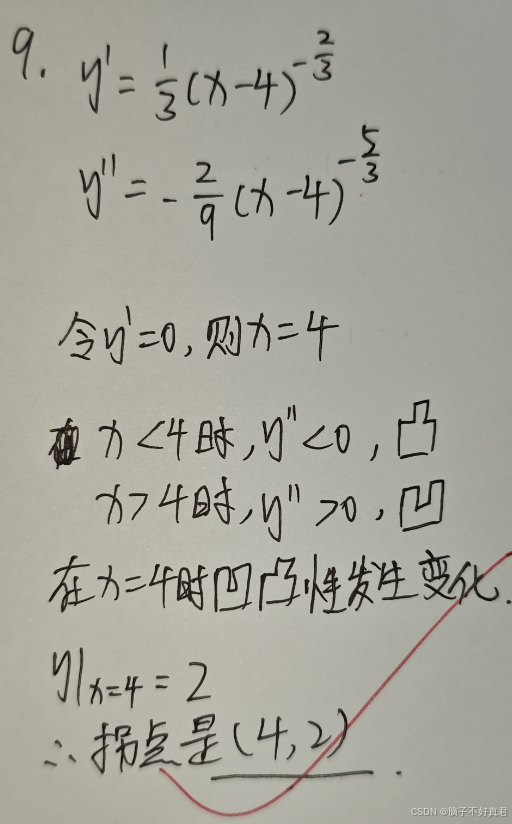 9. y' = 1/3 (x-4)^(-2/3)
y'' = -2/9 (x-4)^(-5/3)
令y'=0, 则x=4
x<4时, y''<0, 凸
x>4时, y''>0, 凹
在x=4时凹凸性发生变化.
y|x=4 = 2
∴ 拐点是(4,2).
CSDN @脑子不好真君